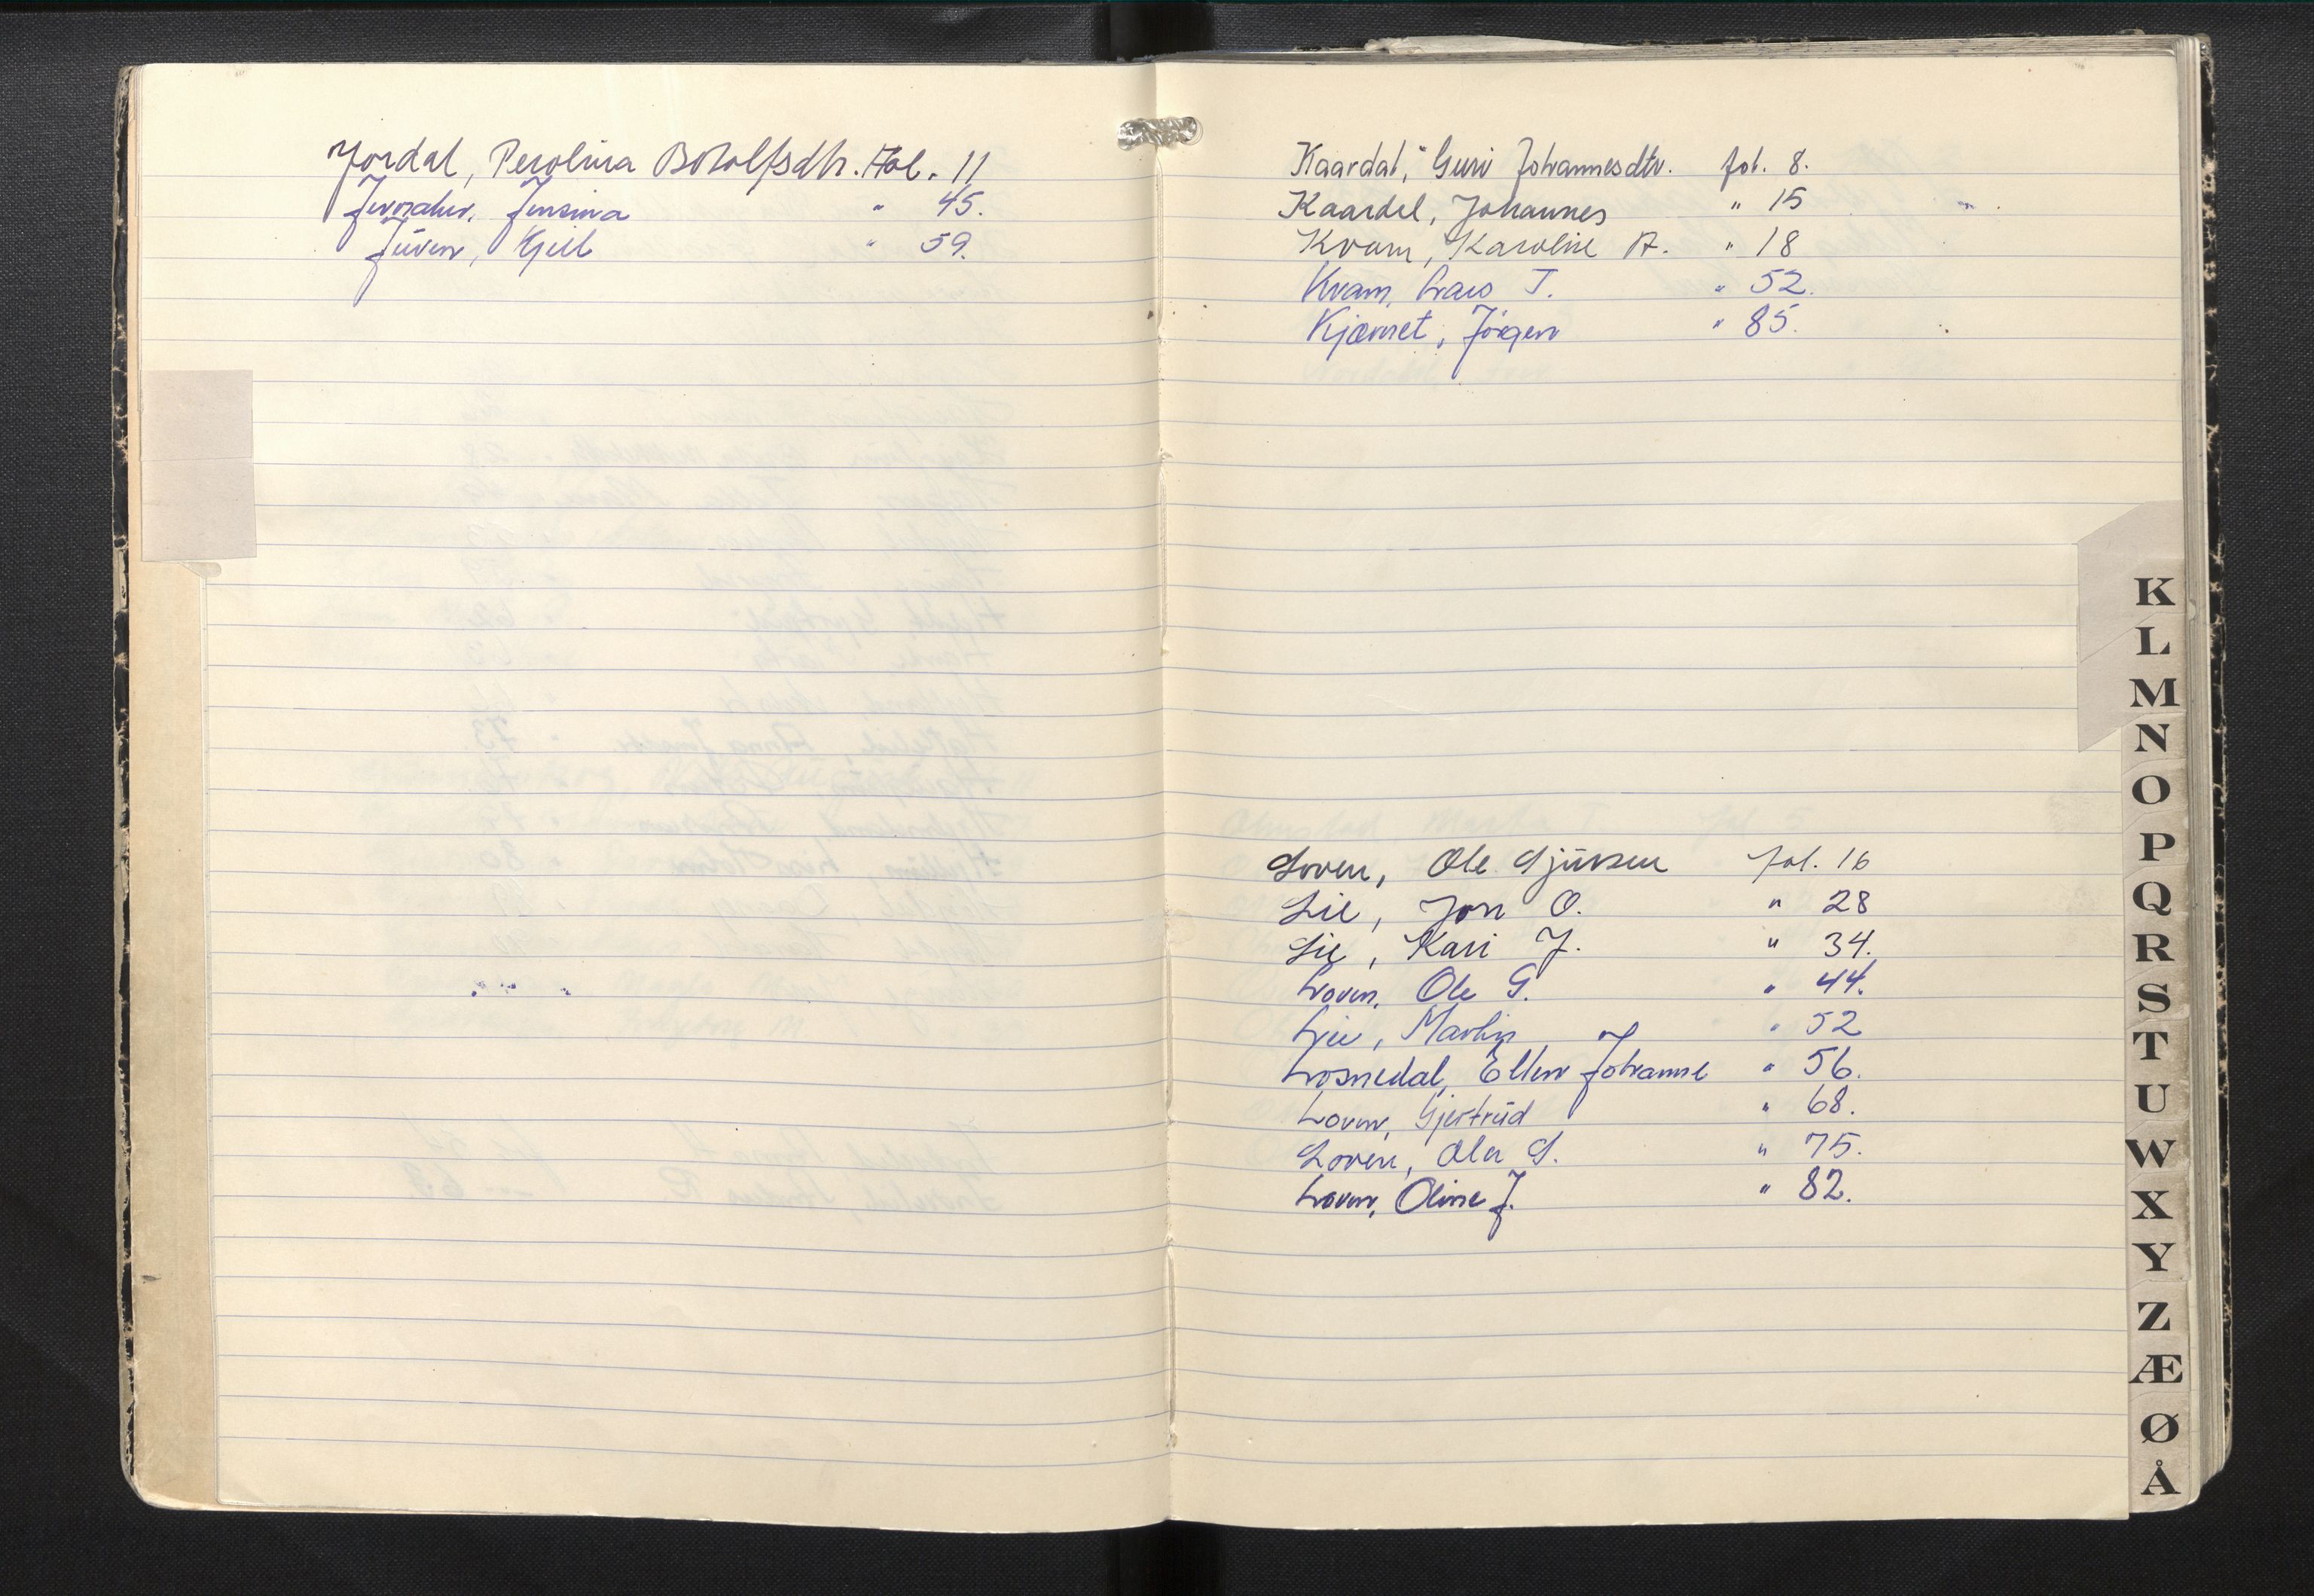 Jordal, Perolina Botolfsdtr. Fol. 11
Jensina " 45.
Juven, Gjill " 59.
Kaardal, Guri Johannesdtr. fol. 8.
Kaardal, Johannes " 15
Kvam, Karoline A. " 18
Kvam, Lars T. " 52.
Kjærnet, Jörgen " 85.
Loven, Ole Sjursen Fol. 16
Lie, Jon O. " 28
Lie, Kari J. " 34.
Loven, Ole G. " 44.
Lie, Martin " 52
Losnedal, Ellen Johanne " 56.
Loven, Gjertrud " 68.
Loven, Ola S. " 75.
Loven, Oline J. " 82.
K
L
M
N
O
P
Q
R
S
T
U
W
X
Y
Z
Æ
Ø
Å